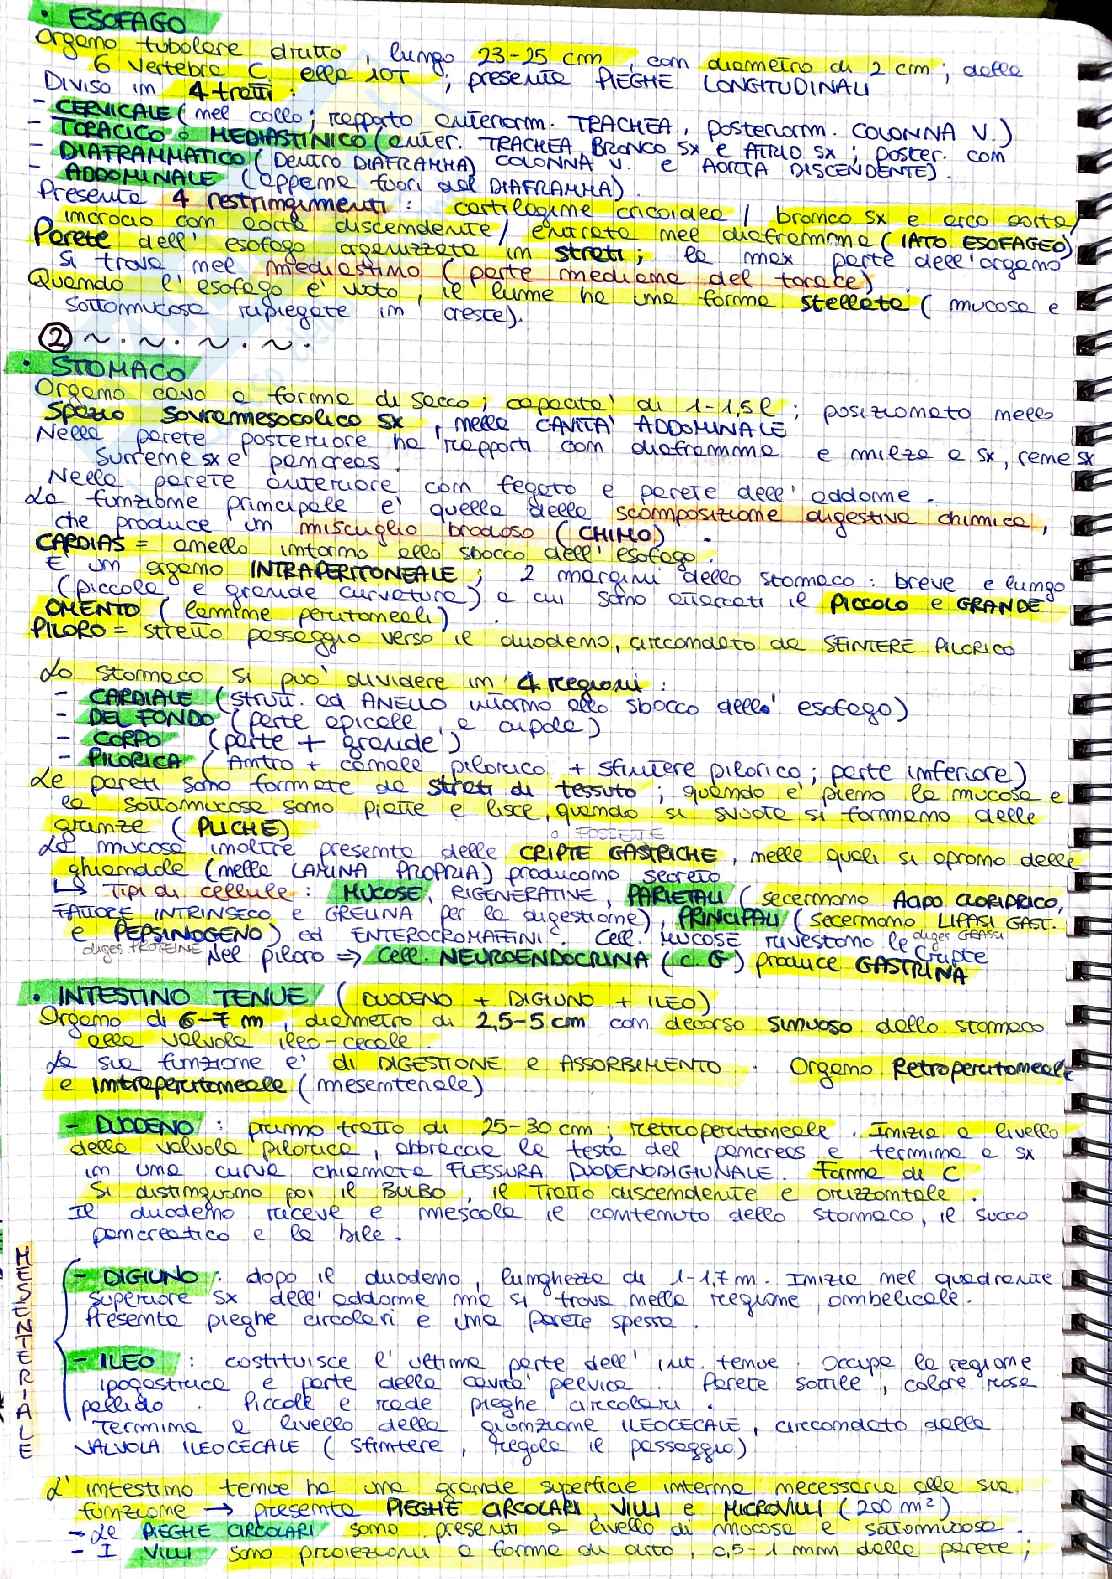 • ESOFAGO
Organo tubolare diritto, lungo 23-25 cm, con diametro di 2 cm; dalla
6 vertebra C. alla 10T; presenta PIEGHE LONGITUDINALI
Diviso in 4 tratti:
- CERVICALE (nel collo; rapporto anteriorm. TRACHEA, posteriorm. COLONNA V.)
- TORACICO o MEDIASTINICO (anter. TRACHEA, BRONCO SX e ATRIO SX; poster. con
- DIAFRAMMATICO (DENTRO DIAFRAMMA) COLONNA V. e AORTA DISCENDENTE).
- ADDOMINALE (appena fuori dal DIAFRAMMA).
Presenta 4 restringimenti: cartilagine cricoidea / bronco sx e arco aorta/
incrocio con aorta discendente/ entrata nel diaframma (IATO ESOFAGEO)
Parete dell'esofago organizzata in strati; la max parte dell'organo
si trova nel mediastino (parte mediana del torace).
Quando l'esofago e' vuoto, il lume ha una forma stellata (mucosa e
sottomucosa ripiegate in creste).
② ~ · ~ · ~ · ~ ·
• STOMACO
Organo cavo a forma di sacco; capacita' di 1-1,5 l; posizionato nello
spazio sovramesocolico sx, nella CAVITA' ADDOMINALE
Nella parete posteriore ha rapporti con diaframma e milza a sx, rene sx
surrene sx e pancreas.
Nella parete anteriore con fegato e parete dell'addome.
La funzione principale e' quella della scomposizione digestiva chimica,
che produce un miscuglio brodoso (CHIMO).
CARDIAS = anello intorno allo sbocco dell'esofago.
E' un organo INTRAPERITONEALE; 2 margini dello stomaco: breve e lungo
(piccola e grande curvatura) a cui sono attaccati il PICCOLO e GRANDE
OMENTO (lamine peritoneali).
PILORO = stretto passaggio verso il duodeno, circondato da SFINTERE PILORICO
Lo stomaco si puo' dividere in 4 regioni:
- CARDIALE (strutt. ad ANELLO intorno allo sbocco dello' esofago)
- DEL FONDO (parte apicale, a cupola)
- CORPO (parte + grande)
- PILORICA (Antro + canale pilorico + sfintere pilorico; parte inferiore)
Le pareti sono formate da strati di tessuto; quando e' pieno la mucosa e
la sottomucosa sono piatte e lisce, quando si svuota si formano delle
grinze (PLICHE)
o FOSSETTE
La mucosa inoltre presenta delle CRIPTE GASTRICHE, nelle quali si aprono delle
ghiandole (nella LAMINA PROPRIA) producono secreto
↳ Tipi di cellule: MUCOSE, RIGENERATIVE, PARIETALI (secernono ACIDO CLORIDRICO,
FATTORE INTRINSECO e GRELINA per la digestione), PRINCIPALI (secernono LIPASI GAST.
diges GRASSI
e PEPSINOGENO) ed ENTEROCROMAFFINI. Cell. MUCOSE rivestono le cripte
diges PROTEINE Nel piloro ⇒ Cell. NEUROENDOCRINA (C. G) produce GASTRINA
• INTESTINO TENUE (DUODENO + DIGIUNO + ILEO)
Organo di 6-7 m, diametro di 2,5-5 cm con decorso sinuoso dallo stomaco
alla valvola ileo-cecale.
La sua funzione e' di DIGESTIONE e ASSORBIMENTO. Organo Retroperitoneale
e intraperitoneale (mesenteriale)
- DUODENO: primo tratto di 25-30 cm; retroperitoneale. Inizia a livello
della valvola pilorica, abbraccia la testa del pancreas e termina a sx
in una curva chiamata FLESSURA DUODENODIGIUNALE. Forma di C
Si distinguono poi il BULBO, il Tratto discendente e orizzontale.
Il duodeno riceve e mescola il contenuto dello stomaco, il succo
pancreatico e la bile.
MESENTERIALE
- DIGIUNO: dopo il duodeno, lunghezza di 1-1,7 m. Inizia nel quadrante
superiore sx dell'addome ma si trova nella regione ombelicale.
Presenta pieghe circolari e una parete spessa.
- ILEO: costituisce l'ultima parte dell'int. tenue. Occupa la regione
ipogastrica e parte della cavita' pelvica. Parete sottile, colore rosa
pallido. Piccole e rade pieghe circolari.
Termina a livello della giunzione ILEOCECALE, circondato dalla
VALVOLA ILEOCECALE (sfintere, regola il passaggio)
L'intestino tenue ha una grande superficie interna necessaria alla sua
funzione → presenta PIEGHE CIRCOLARI, VILLI e MICROVILLI (200 m²)
- Le PIEGHE CIRCOLARI sono presenti a livello di mucosa e sottomucosa.
- I VILLI sono proiezioni a forma di dito, 0,5-1 mm dalla parete;